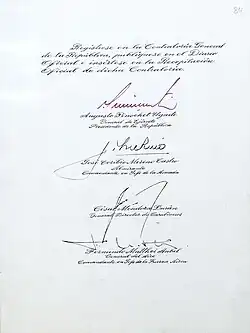 Regístrese en la Contraloría General
de la República, publíquese en el Diario
Oficial e insértese en la Recopilación
Oficial de dicha Contraloría.
Augusto Pinochet Ugarte
General de Ejército
Presidente de la República
José Toribio Merino Castro
Almirante
Comandante en Jefe de la Armada
César Mendoza Durán
General Director de Carabineros
Fernando Matthei Aubel
General del Aire
Comandante en Jefe de la Fuerza Aérea